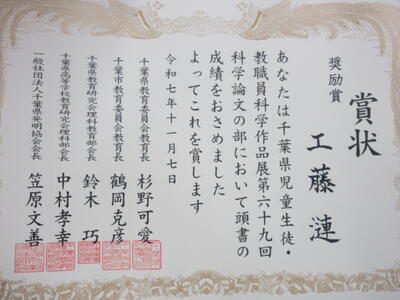 賞状
奨励賞
工藤漣
あなたは千葉県児童生徒・
教職員科学作品展第六十九回
科学論文の部において頭書の
成績をおさめました
よってこれを賞します
令和七年十一月七日
千葉県教育委員会教育長 杉野可愛
千葉市教育委員会教育長 鶴岡克彦
千葉県教育研究会理科教育部会長 鈴木巧
千葉県高等学校教育研究会理科部会長 中村孝幸
一般社団法人千葉県発明協会会長 笠原文善